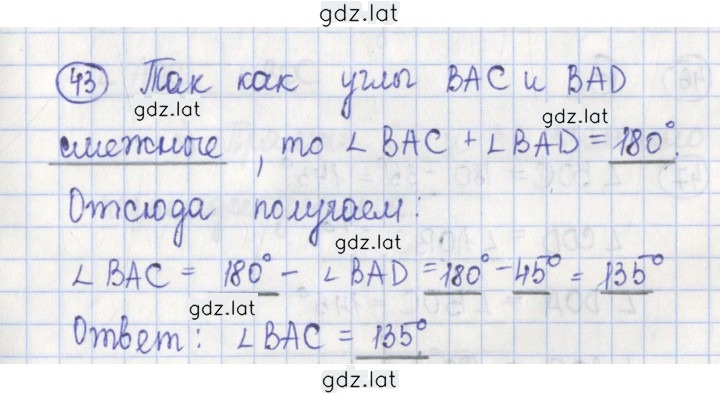 gdz.lat
43 Так как углы BAC и BAD
gdz.lat
смежные, то ∠ BAC + ∠ BAD = 180°.
Отсюда получаем:
gdz.lat
∠ BAC = 180° - ∠ BAD = 180° - 45° = 135°
gdz.lat
Ответ: ∠ BAC = 135°
gdz.lat